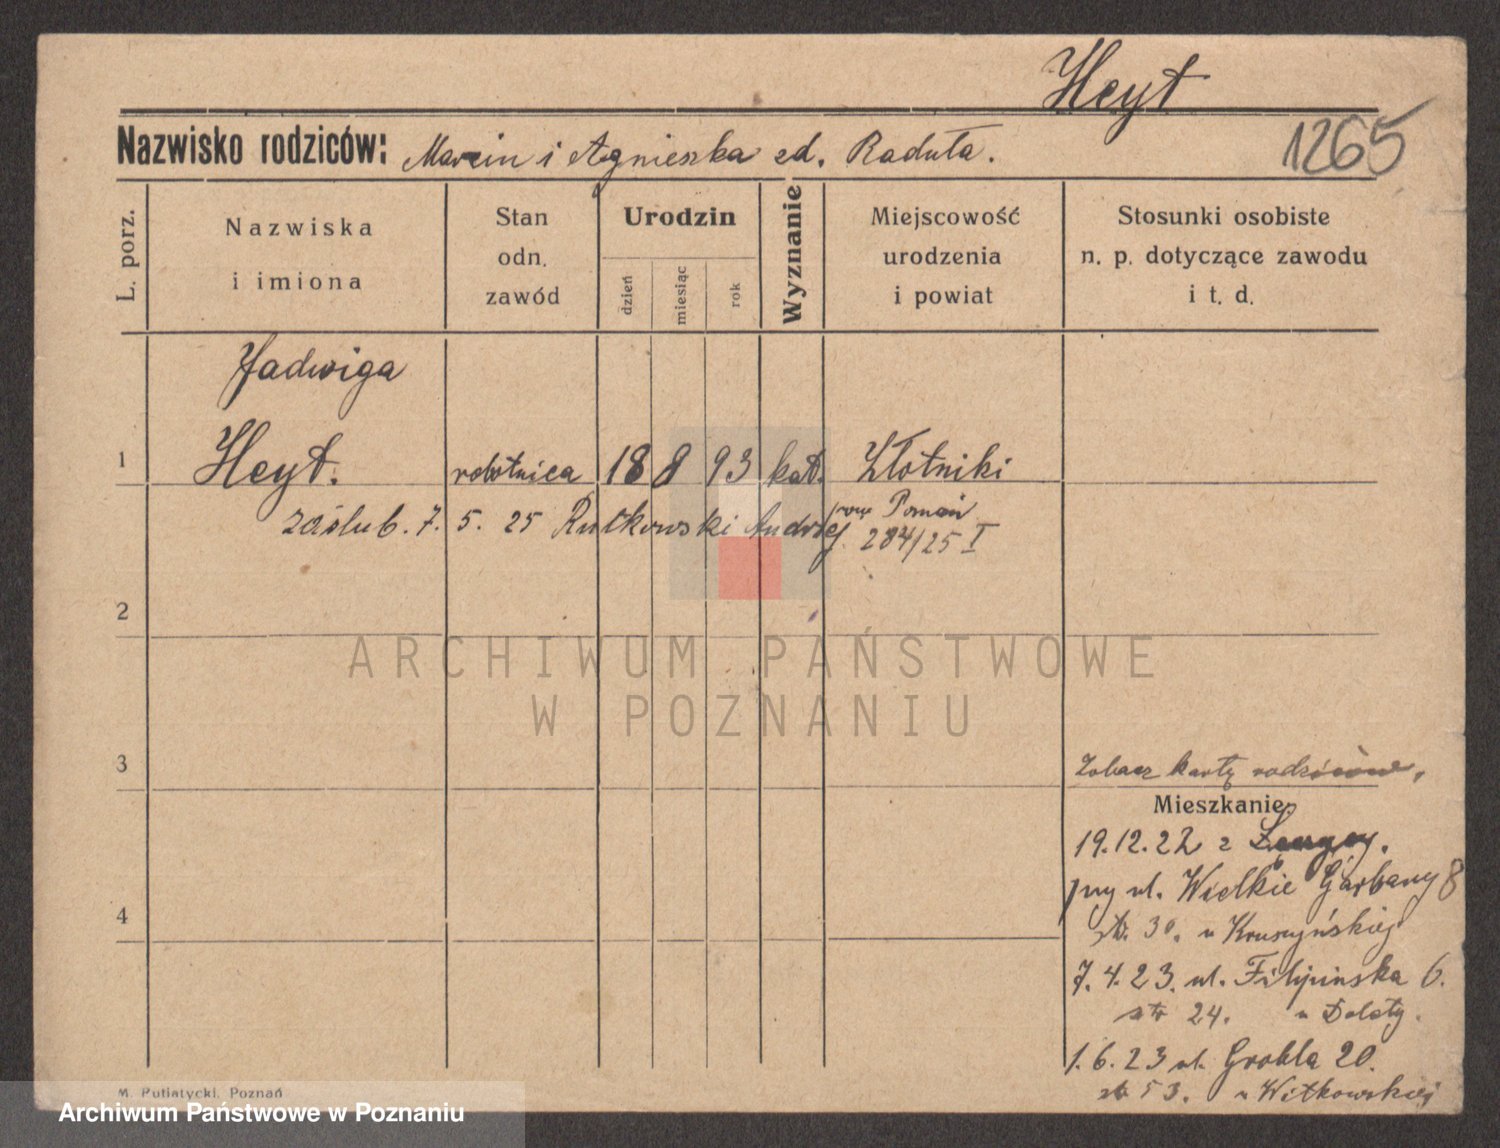 Heyt
1265
Nazwisko rodziców: Marcin i Agnieszka zd. Raduła.
L. porz.
Nazwiska
i imiona
Stan
odn.
zawód
Urodzin
dzień
miesiąc
rok
Wyznanie
Miejscowość
urodzenia
i powiat
Stosunki osobiste
n. p. dotyczące zawodu
i t. d.
Jadwiga
1 Heyt. robotnica 18 8 93 kat. Złotniki
zaślub. 7. 5. 25 Rutkowski Andrzej. Poznań
284/25 I
2
ARCHIWUM PAŃSTWOWE
W POZNANIU
3
Zobacz kartę rodziców.
Mieszkanie
19.12.22 z
ul. Wielkie Garbary 8
str. 30. u Kruszyńskiej
4
7.4.23. ul. Filipińska 6.
str 24. u Dolaty.
1.6.23 ul. Grobla 20.
str 53. u Witkowskiej
M. Putiatycki, Poznań
Archiwum Państwowe w Poznaniu